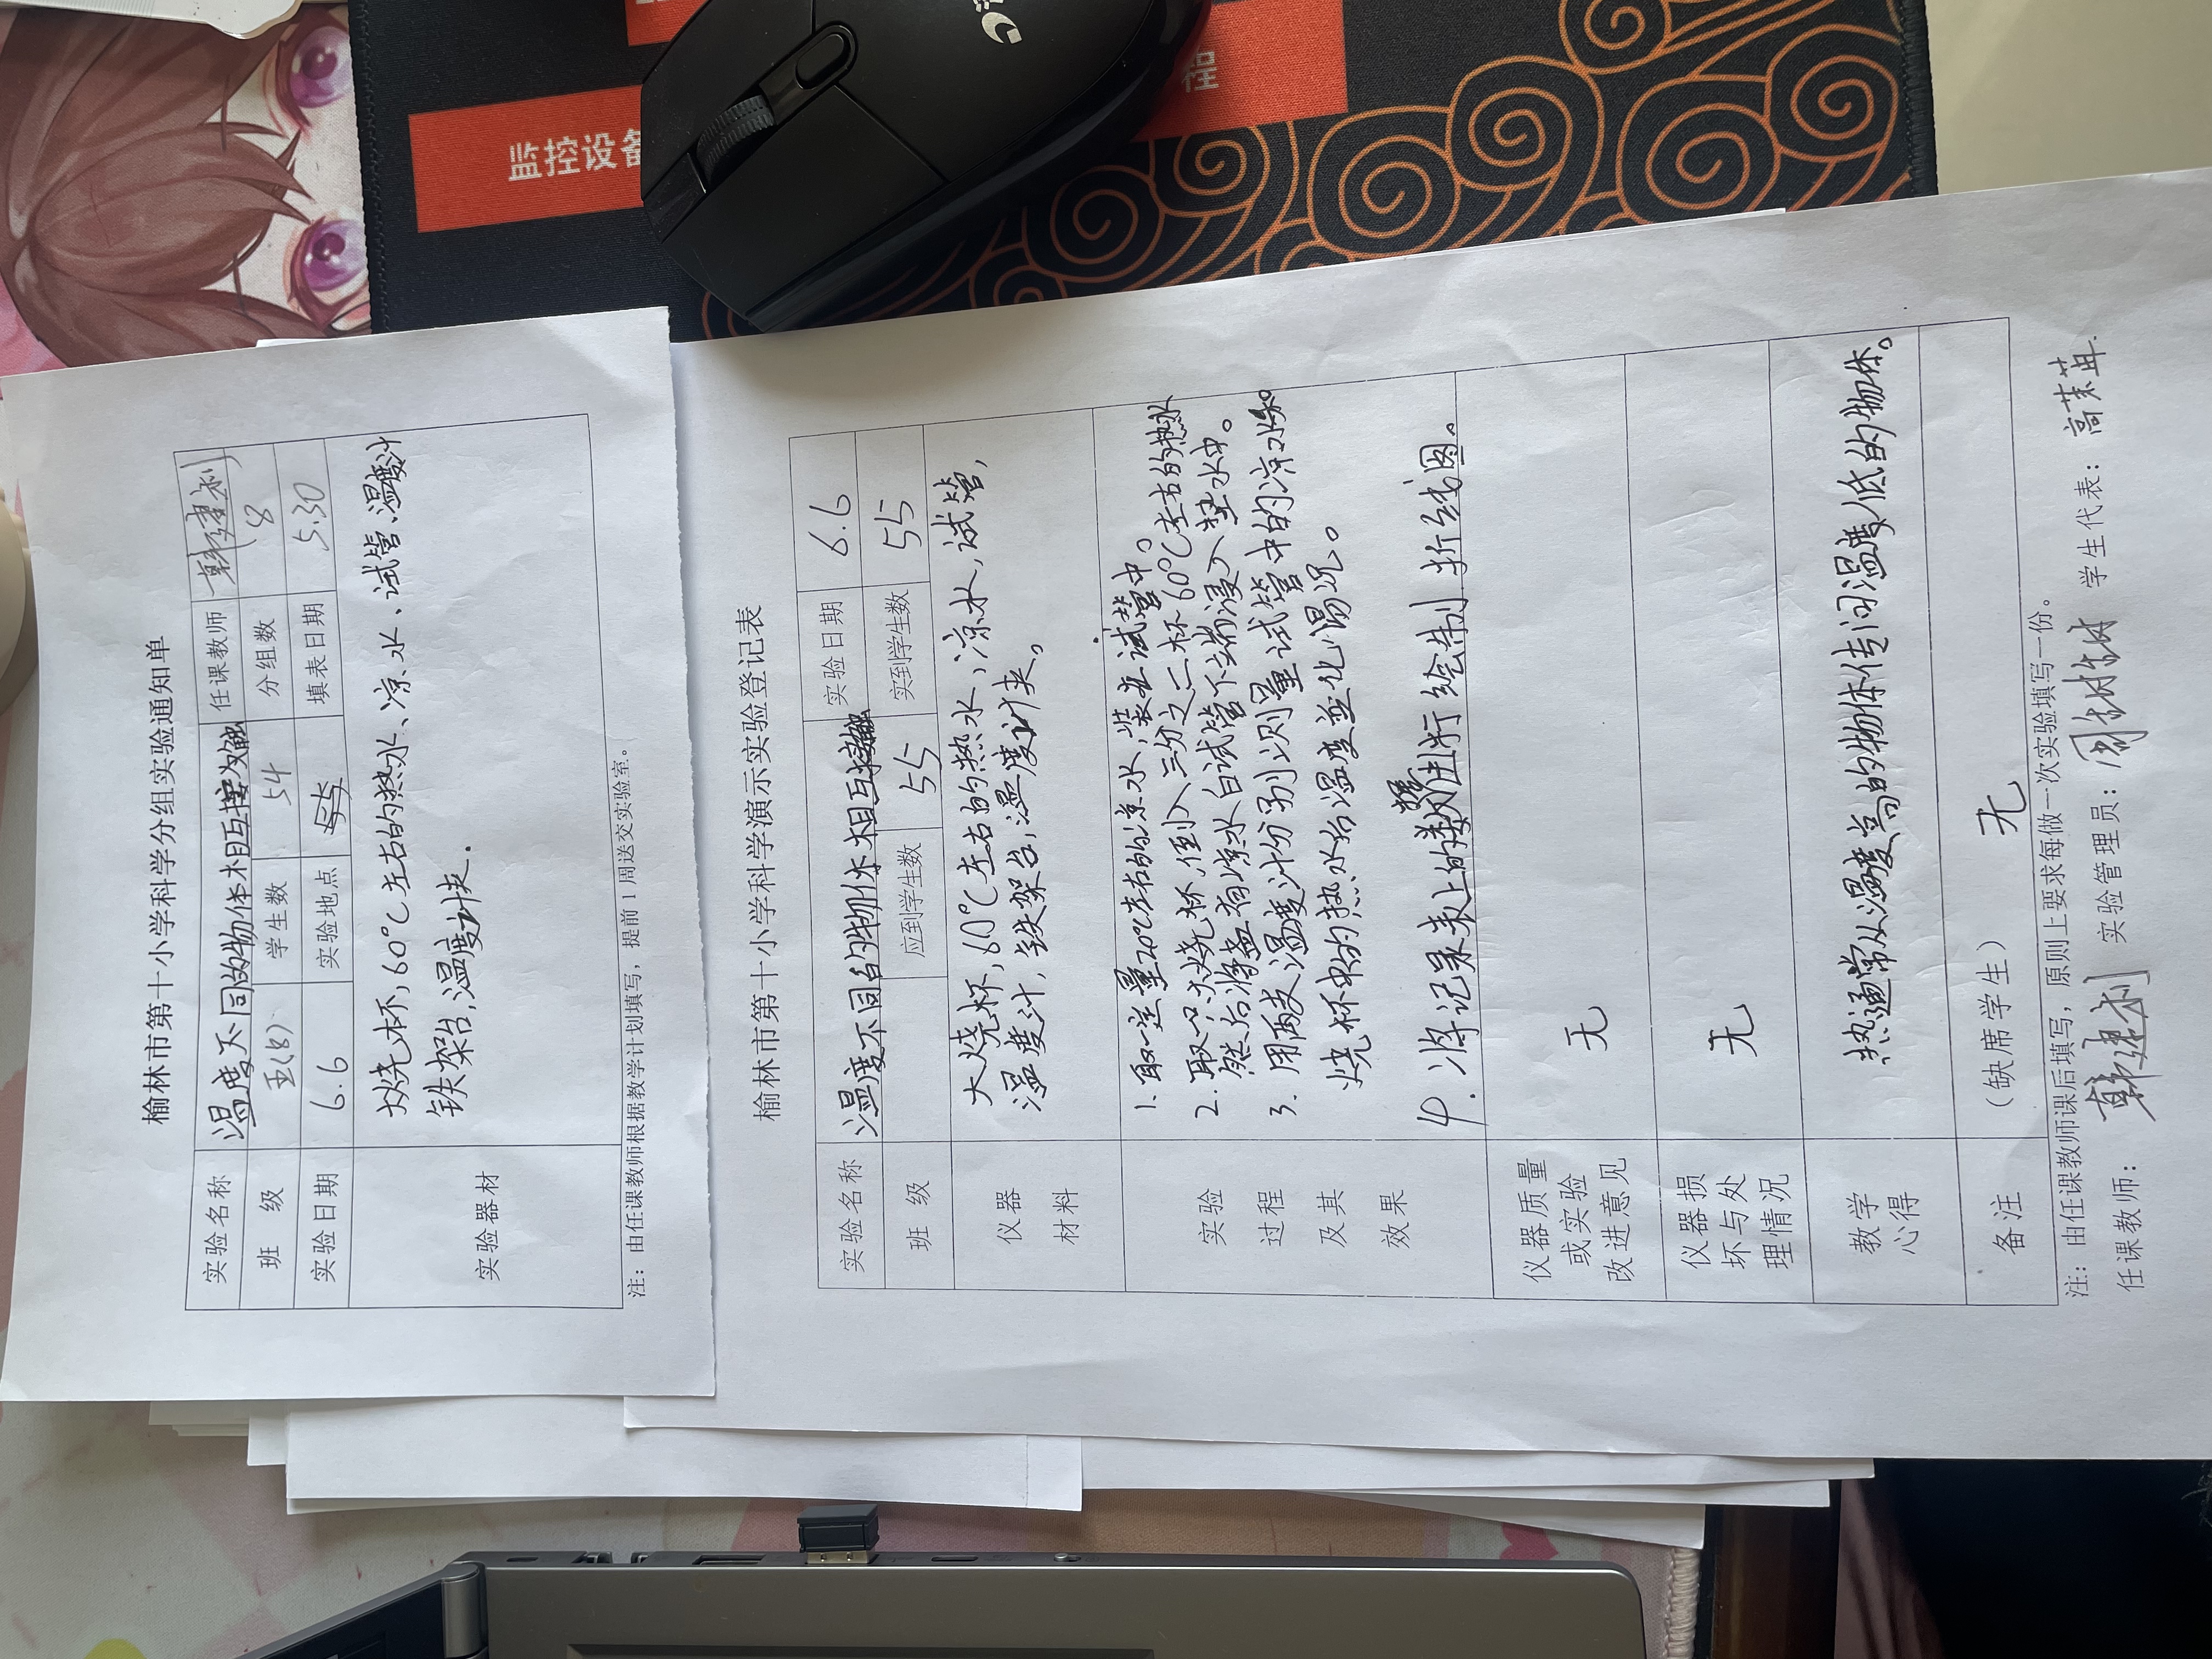 监控设备
榆林市第十小学科学分组实验通知单
实验名称 温度不同的物体相互接触 任课教师 韩建利
班 级 五(8) 学生数 54 分组数 8
实验日期 6.6 实验地点 填表日期 5.30
实验器材
烧杯,60℃左右的热水、凉水、试管、温度计
铁架台,温度计夹.
注：由任课教师根据教学计划填写，提前1周送交实验室。
榆林市第十小学科学演示实验登记表
实验名称 温度不同的物体相互接触 实验日期 6.6
班 级 应到学生数 55 实到学生数 55
仪器
材料
大烧杯,60℃左右的热水,凉水,试管,
温度计,铁架台,温度计夹。
实验
过程
及其
效果
1. 取一定量20℃左右的凉水,装在试管中。
2. 取一只大烧杯,倒入三分之二杯60℃左右的热水
然后将盛有凉水的试管下端浸入热水中。
3. 用两支温度计分别测量试管中的凉水和
烧杯中的热水的温度变化情况。
4. 将记录表上的数据进行绘制折线图。
仪器质量
或实验
改进意见
无
仪器损
坏与处
理情况
无
教学
心得
热通常从温度高的物体传向温度低的物体。
备注 (缺席学生) 无
注：由任课教师课后填写，原则上要求每做一次实验填写一份。
任课教师：韩建利 实验管理员： 学生代表：